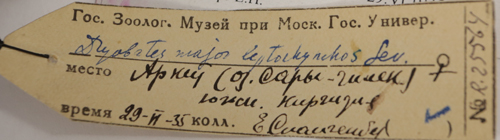 Гос. Зоолог. Музей при Моск. Гос. Универ.
Dryobates major leptorhynchus Sev.
место Аркит (оз. Сары-чилек) ♀
южн. Киргизия
время 29-VI-35 колл. Е Спангенберг